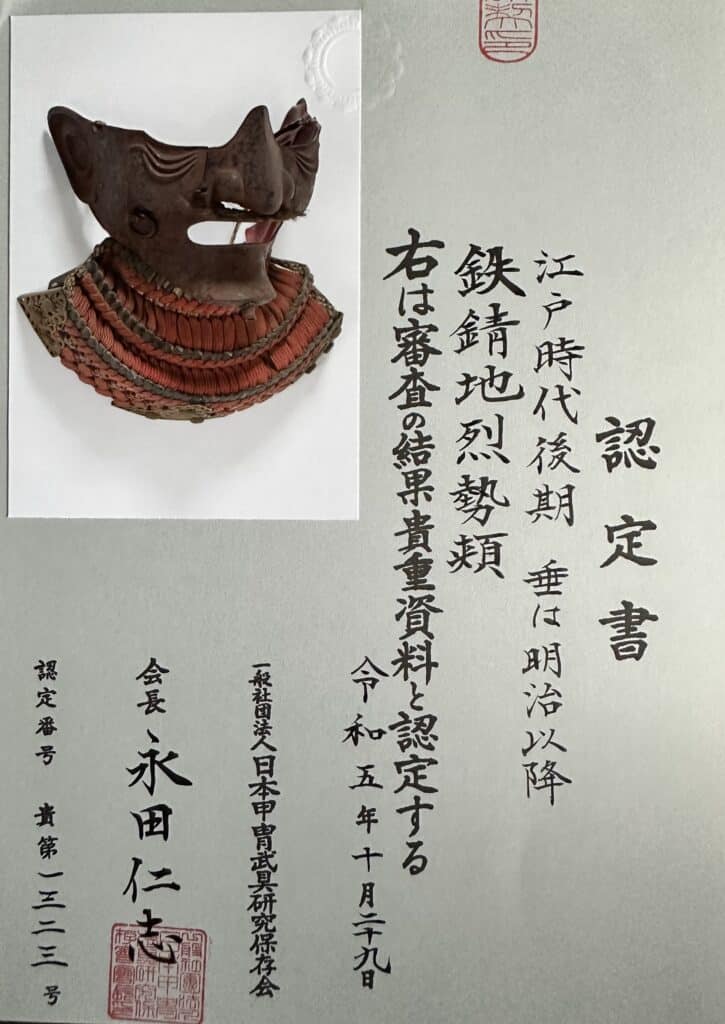 認定書
江戸時代後期 垂は明治以降
鉄錆地烈勢頬
右は審査の結果貴重資料と認定する
令和五年十月二十九日
一般社団法人日本甲冑武具研究保存会
会長 永田仁志
認定番号 貴第一三二三号